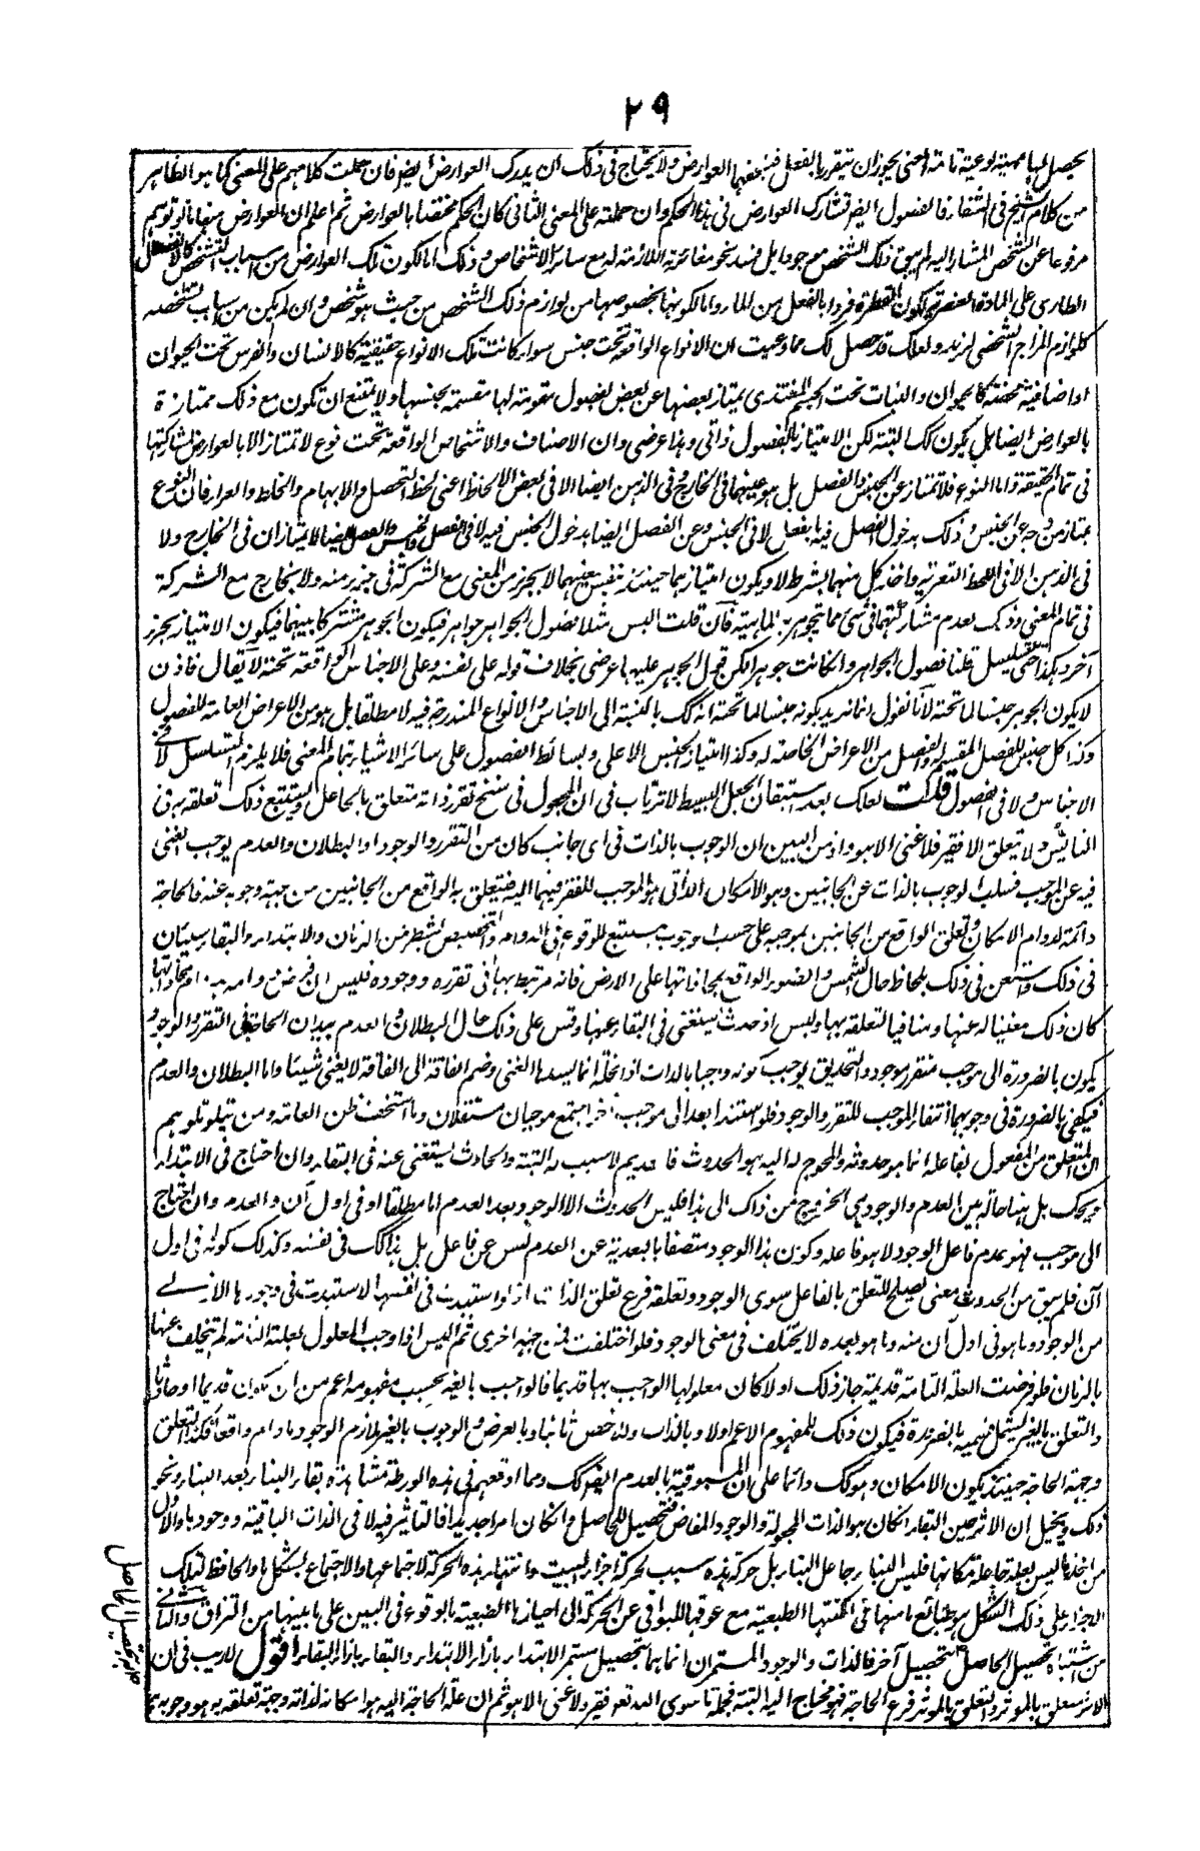 ٢٩
يحصل لها مهية نوعية تامة اعنى يجوز ان يتقرر بالفعل فيتبعها العوارض ولا يحتاج فى ذلك ان يدرك العوارض ايضا فان حملت كلامهم على المعنى كما هو الظاهر
من كلام الشيخ فى الشفا فالفصول ايضا تشارك العوارض فى هذا الحكم وان حملته على المعنى الثانى كان الحكم مختصا بالعوارض ثم اعلم ان العوارض منها ما لو توهم
مرفوعا عن الشخص المشار اليه لم يبق ذلك الشخص موجودا بل فسد نحو مغائرته اللازمة له مع سائر الاشخاص وذلك اما لكون تلك العوارض من اسباب التشخص كالانفصال
الطارى على المادة العنصرية لكون القطرة فردا بالفعل من الماء واما لكونها بخصوصها من لوازم ذلك الشخص من حيث هو شخص وان لم يكن من اسباب تشخصه
كلوازم المزاج الشخصى لزيد ولعلك قد حصل لك مما وعيت ان الانواع الواقعة تحت جنس سواء كانت تلك الانواع حقيقية كالانسان والفرس تحت الحيوان
او اضافية محضة كالحيوان والنبات تحت الجسم المغتذى يمتاز بعضها عن بعض بفصول مقومة لها مقسمة لجنسها ولا يمتنع ان تكون مع ذلك ممتازة
بالعوارض ايضا بل يكون كك البتة لكن الامتياز بالفصول ذاتى وهذا عرضى وان الاصناف والاشخاص الواقعة تحت نوع لا تمتاز الا بالعوارض لمشاركتها
فى تمام الحقيقة واما النوع فلا تمتاز عن الجنس والفصل بل هو عينهما فى الخارج وفى الذهن ايضا الا فى بعض الالحاظ اعنى لحظ التحصل والابهام والخلط والعراء فان النوع
يمتاز من وجه عن الجنس وذلك بدخول الفصل فيه بالفعل لا فى الجنس وعن الفصل ايضا بدخول الجنس فيه لا فى الفصل والجنس والفصل ايضا لا يمتازان فى الخارج ولا
فى الذهن الا فى اللحظ التعرية واخذ كل منهما بشرط لا ويكون امتيازهما حينئذ بنفس معنيهما لا بجزء من المعنى مع الشركة فى جزء منه ولا بخارج مع الشركة
فى تمام المعنى وذلك بعدم مشاركتهما فى شئ مما يتجوهر به الماهية فان قلت اليس مثلا فصول الجواهر جواهر فيكون الجوهر مشتركا بينهما فيكون الامتياز بجزء
آخر وهكذا حتى يتسلسل قلنا فصول الجواهر وان كانت جوهرا لكن قول الجوهر عليها عرضى بخلاف قوله على نفسه وعلى الاجناس الواقعة تحته لا يقال فاذن
لا يكون الجوهر جنسا لما تحته لانا نقول انما نريد بكونه جنسا لما تحته انه كك بالنسبة الى الاجناس والانواع المندرجة فيه لا مطلقا بل هو من الاعراض العامة للفصول
وكذا كل جنس للفصل المقسم له والفصل من الاعراض الخاصة له وكذا امتياز الجنس الاعلى وبسائط الفصول على سائر الاشياء بتمام المعنى فلا يلزم التسلسل لا فى
الاجناس ولا فى الفصول قلت لعلك بعد استيقان الجعل البسيط لا ترتاب فى ان المجعول فى سنخ تقرر ذاته متعلق بالجاعل ويستتبع ذلك تعلقه به فى
التأيس ولا يتعلق الا فقير فلا غنى الا هو واذ من البين ان الوجوب بالذات فى اى جانب كان من التقرر والوجود او البطلان والعدم يوجب الغنى
فيه عن الموجب فسلب الوجوب بالذات عن الجانبين وهو الامكان الذاتى هو الموجب للفقر فيهما اليه فيتعلق به الواقع من الجانبين من جهة وجوبه عنه فالحاجة
دائمة لدوام الامكان وتعلق الواقع من الجانبين بموجبه على حسب الوجوب يستتبع للوقوع فى الدوام والتخصيص بشطر من الزمان والابتداء والبقاء سيان
فى ذلك واستعن فى ذلك بلحاظ حال الشمس والضوء الواقع بمحاذاتها على الارض فانه مرتبط بها فى تقرره ووجوده فليس ان فرض دوامه بدوام محاذاتها
كان ذلك مغنيا له عنها ومنافيا لتعلقه بها وليس اذ حدث يستغنى فى البقاء عنها وقس على ذلك حال البطلان والعدم بيد ان الحاجة فى التقرر والوجود
يكون بالضرورة الى موجب متقرر موجود والتحديق يوجب كونه واجبا بالذات اذ الخلة انما يسدها الغنى وضم الفاقة الى الفاقة لا يغنى شيئا واما البطلان والعدم
فيكفى بالضرورة فى وجوبهما انتفاء الموجب للتقرر والوجود فلو استندا بعد الى موجب آخر اجتمع موجبان مستقلان وما استخف ظن العامة ومن يتلو تلوهم
ان المتعلق من المفعول بفاعله انما هو حدوثه والمحوج له اليه هو الحدوث فالقديم لا سبب له البتة والحادث يستغنى عنه فى البقاء وان احتاج فى الابتداء
ويحك بل هنا حالة بين العدم والوجود هى الخروج من ذاك الى هذا فليس الحدوث الا الوجود بعد العدم اما مطلقا او فى اول آن والعدم وان احتاج
الى موجب فهو عدم فاعل الوجود لا هو فاعله وكون هذا الوجود متصفا بالبعدية عن العدم ليس عن فاعل بل هذا كك فى نفسه وكذلك كونه فى اول
آن فلم يبق من الحدوث معنى يصلح للتعلق بالفاعل سوى الوجود وتعلقه فرع تعلق الذات اذ لو استبدت فى نفسها لاستبدت فى وجودها الازلى
من الوجود وما هو فى اول آن منه وما هو بعده لا يختلف فى معنى الوجود فلو اختلفت فمن جهة اخرى ثم اليس اذا وجب المعلول لعلته التامة لم يتخلف عنها
بالزمان فلو فرضت العلة التامة قديمة جاز ذلك او لا كان معلولها الواجب بها قديما فالواجب بالغير بحسب مفهومه اعم من ان يكون قديما او حادثا
والتعلق بالغير يشمل قسميه بالضرورة فيكون ذلك للمفهوم الاعم اولا وبالذات ولاخص ثانيا وبالعرض والوجوب بالغير يلازم الوجود ما دام واقعا فكذا التعلق
وجهة الحاجة حينئذ يكون الامكان وهو كك دائما على ان المسبوقية بالعدم ايضا كك ومما اوقعهم فى هذه الورطة مشاهدة بقاء البناء بعد البناء ونحو
ذلك وتخيل ان الاثر حين البقاء ان كان هو الذات المجعولة والوجود المفاض فتحصيل للحاصل وان كان امرا جديدا فالتاثير فيه لا فى الذات الباقية ووجودها والاول
من اخذ ما ليس بعلة جاعلة مكانها فليس البناء جاعل البناء بل حركة يده سبب لحركة اجزاء البيت وانتهاء هذه الحركة لاجتماعها والاجتماع لشكل ما والحافظ لتلك
الاجزاء على ذلك الشكل هو طبائعها منها فى امكنتها الطبيعية مع عوقها للبواقى عن الحركة الى احيازها الطبيعية بالوقوع فى البين على ما بينها من التراق والثانى
من اشتباه تحصيل الحاصل بتحصيل آخر فالذات والوجود المستمران انما هما بتحصيل مستمر الابتداء بازاء الابتداء والبقاء بازاء البقاء اقول لا ريب فى ان
الاثر متعلق بالمؤثر والتعلق بالمؤثر فرع الحاجة فهو محتاج اليه البتة فجملة ما سوى الله تعالى فقير ولا غنى الا هو ثم ان علة الحاجة اليه هو امكانه لذاته وجهة تعلقه به هو وجوبه